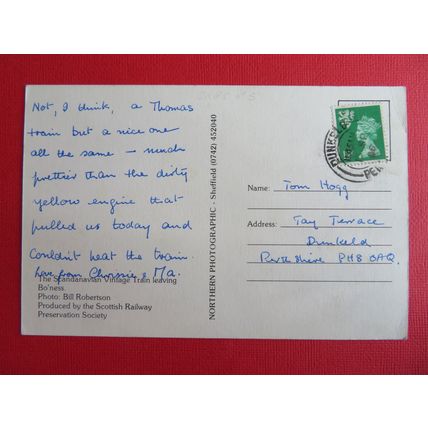 Not, I think, a Thomas
train but a nice one
all the same — much
prettier than the dirty
yellow engine that
pulled us today and
couldn't heat the train.
Love from Chrissie & Ma.
The Scandanavian Vintage Train leaving
Bo'ness.
Photo: Bill Robertson
Produced by the Scottish Railway
Preservation Society
NORTHERN PHOTOGRAPHIC - Sheffield (0742) 452040
DUNKE
PER
Name: Tom Hogg
Address: Tay Terrace
Dunkeld
Perthshire PH8 0AQ.